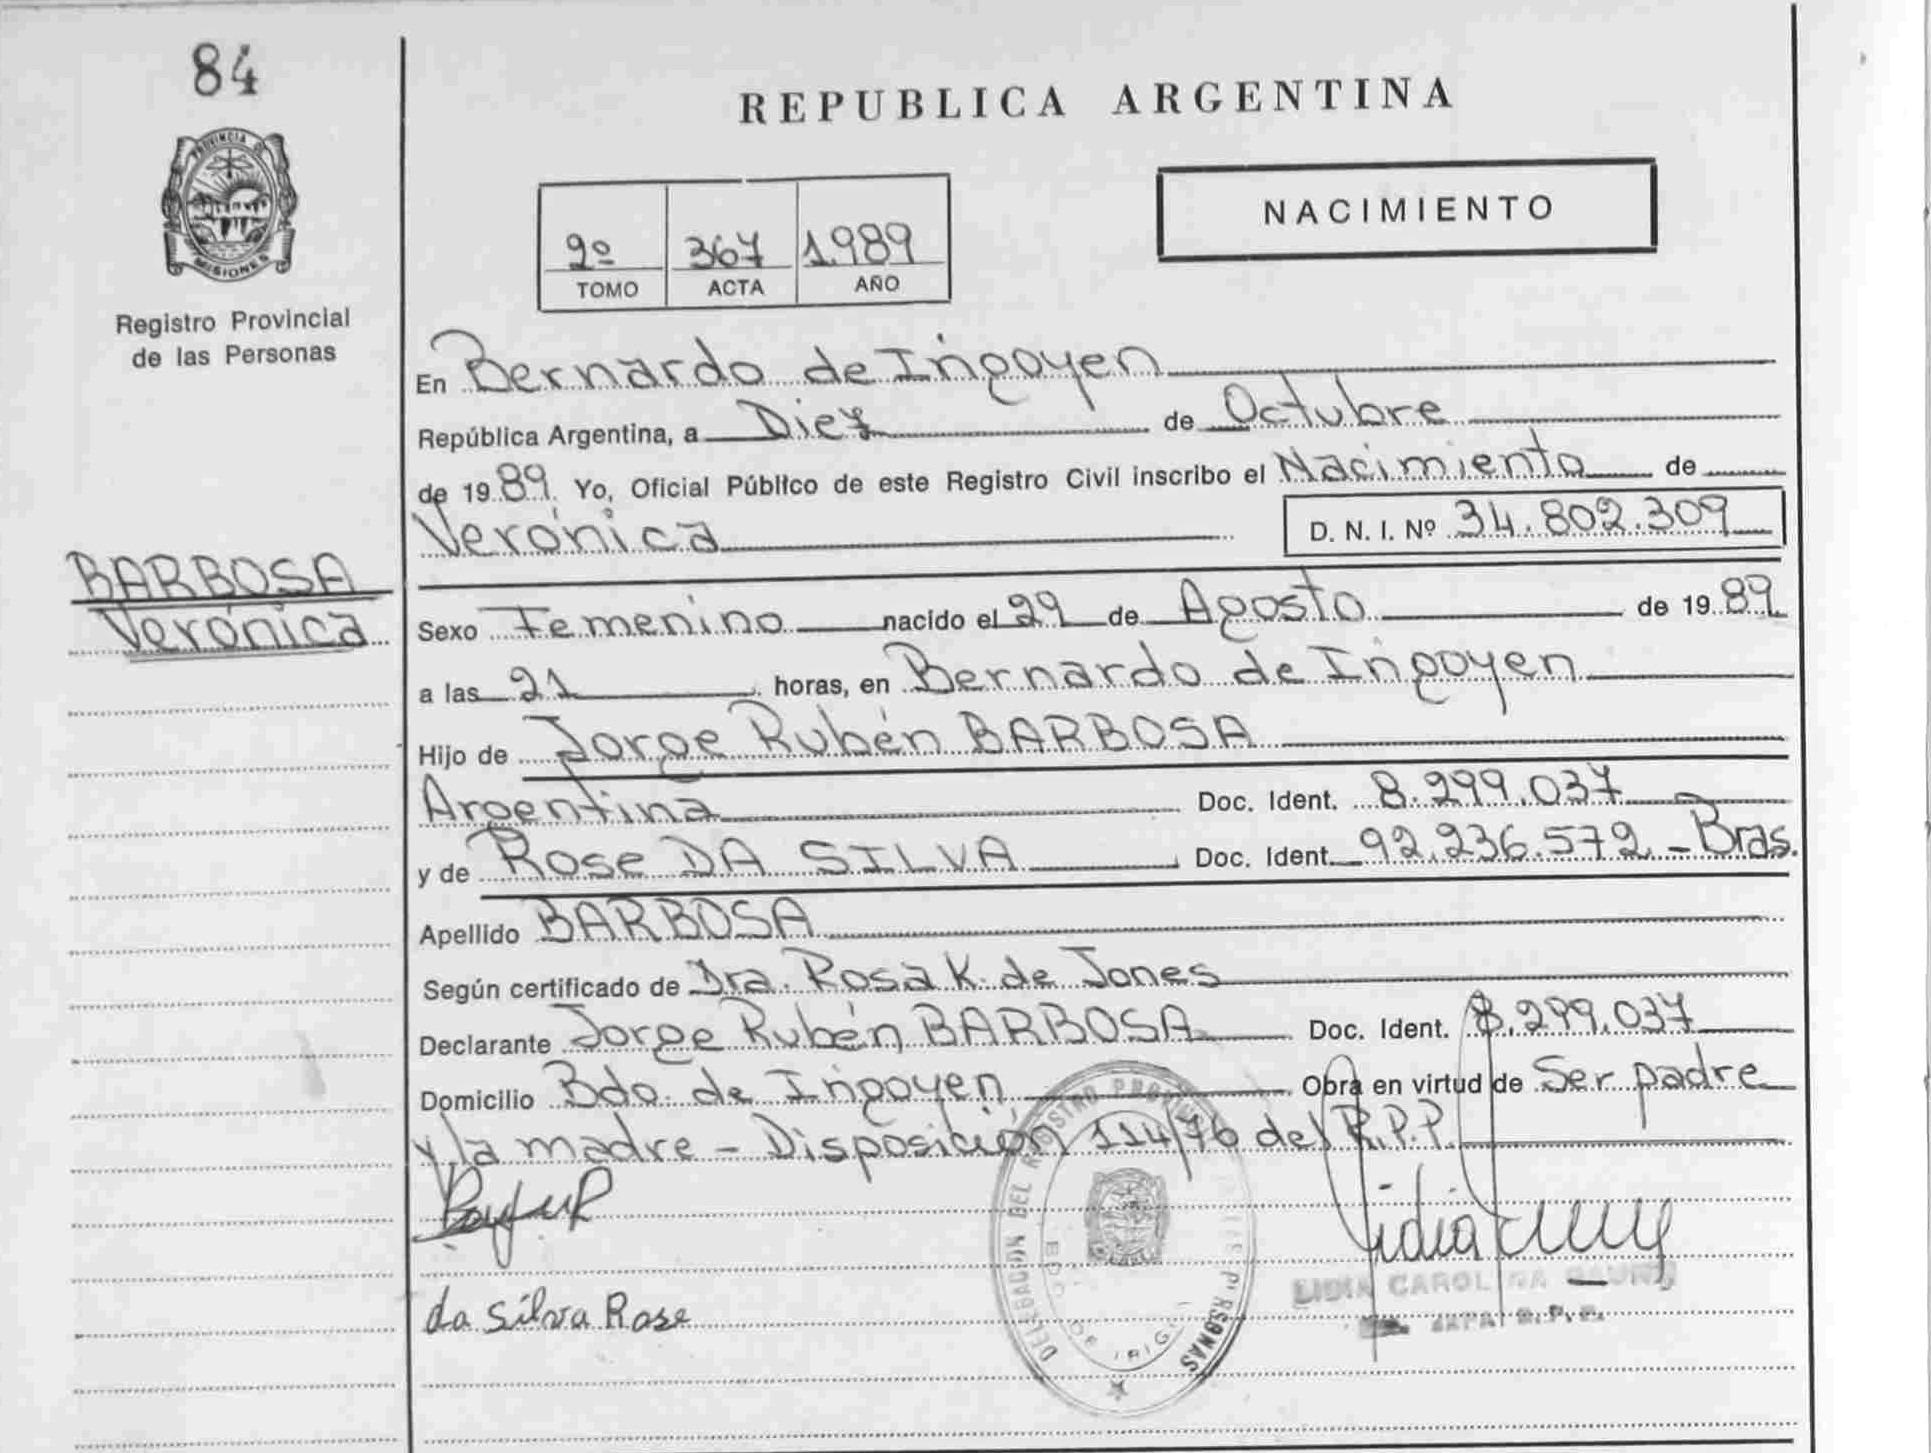 84
PROVINCIA DE
MISIONES
Registro Provincial
de las Personas
BARBOSA
Verónica
REPUBLICA ARGENTINA
NACIMIENTO
2º 367 1.989
TOMO ACTA AÑO
En Bernardo de Irigoyen
República Argentina, a Diez de Octubre
de 1989. Yo, Oficial Público de este Registro Civil inscribo el Nacimiento de
Verónica D. N. I. Nº 34.802.309
Sexo Femenino nacido el 29 de Agosto de 1989
a las 21 horas, en Bernardo de Irigoyen
Hijo de Jorge Rubén BARBOSA
Argentina Doc. Ident. 8.299.037
y de Rose DA SILVA Doc. Ident. 92.236.572 - Bras.
Apellido BARBOSA
Según certificado de Dra. Rosa K. de Jones
Declarante Jorge Rubén BARBOSA Doc. Ident. 8.299.037
Domicilio Bdo. de Irigoyen Obra en virtud de Ser padre
y la madre - Disposición 114/76 del R.P.P.
DELEGACION DEL REGISTRO PERSONAS
da Silva Rose
LIDIA CAROLINA